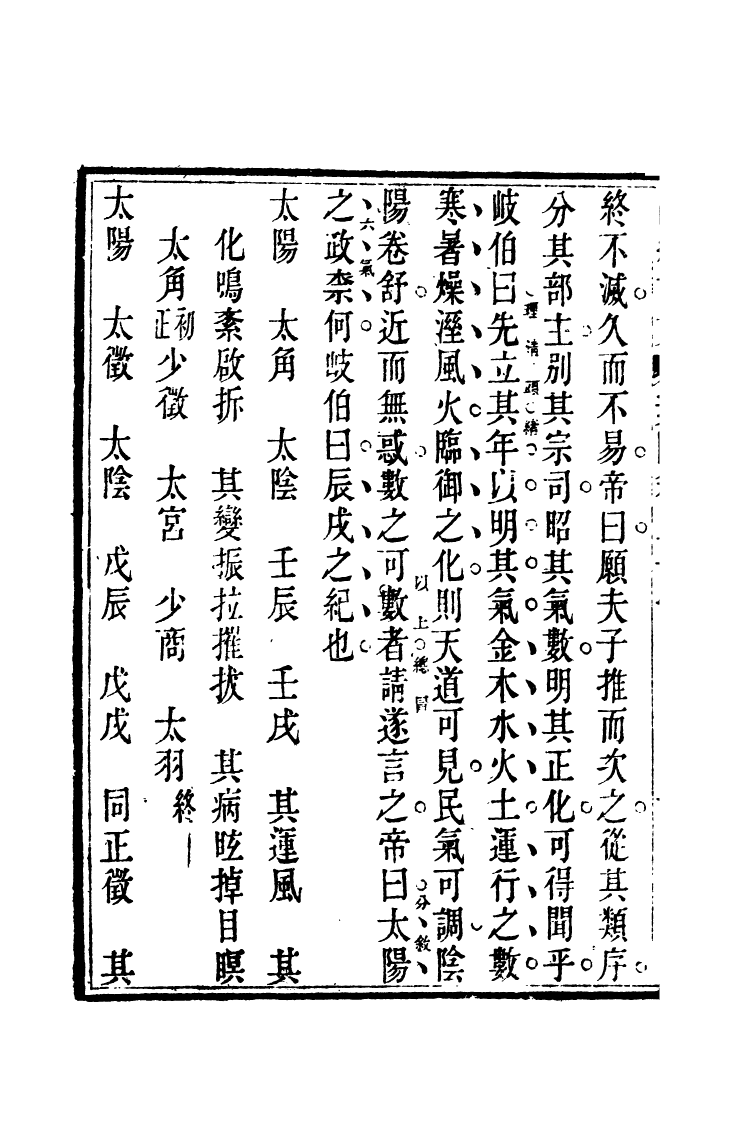 終不滅久而不易帝曰願夫子推而次之從其類序
分其部主別其宗司昭其氣數明其正化可得聞乎
岐伯曰先立其年以明其氣金木水火土運行之數
理清頭緒
寒暑燥溼風火臨御之化則天道可見民氣可調陰
陽卷舒近而無惑數之可數者請遂言之帝曰太陽
以上總冒
分敘
六氣
之政柰何岐伯曰辰戌之紀也
太陽 太角 太陰 壬辰 壬戌 其運風 其
化鳴紊啟拆 其變振拉摧拔 其病眩掉目瞑
太角初正 少徵 太宮 少商 太羽終
太陽 太徵 太陰 戊辰 戊戌 同正徵 其